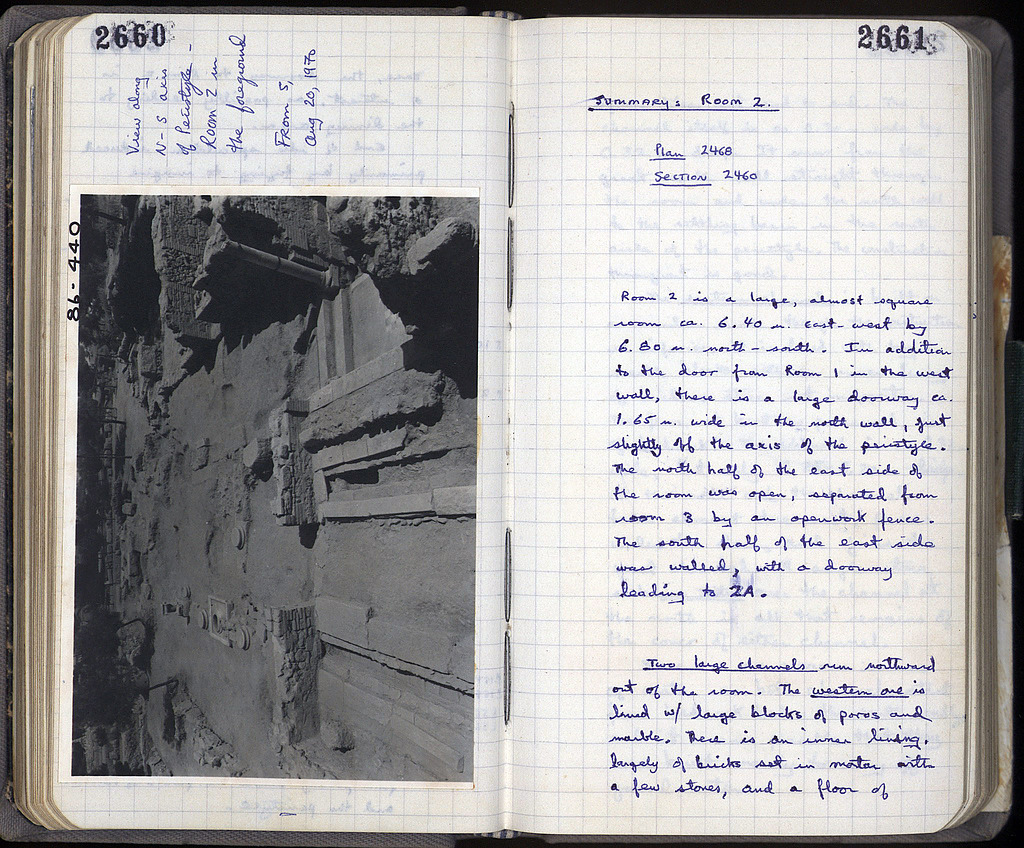 2660
View along
N-S axis
of Peristyle -
Room 2 in
the foreground
From S,
Aug 20, 1970
86-440
2661
SUMMARY: ROOM 2.
Plan 2468
Section 2460
Room 2 is a large, almost square
room ca. 6.40 m. east-west by
6.80 m. north-south. In addition
to the door from Room 1 in the west
wall, there is a large doorway ca.
1.65 m. wide in the north wall, just
slightly off the axis of the peristyle.
The north half of the east side of
the room was open, separated from
room 3 by an openwork fence.
The south half of the east side
was walled, with a doorway
leading to 2A.
Two large channels run northward
out of the room. The western one is
lined w/ large blocks of poros and
marble. There is an inner lining,
largely of bricks set in mortar with
a few stones, and a floor of